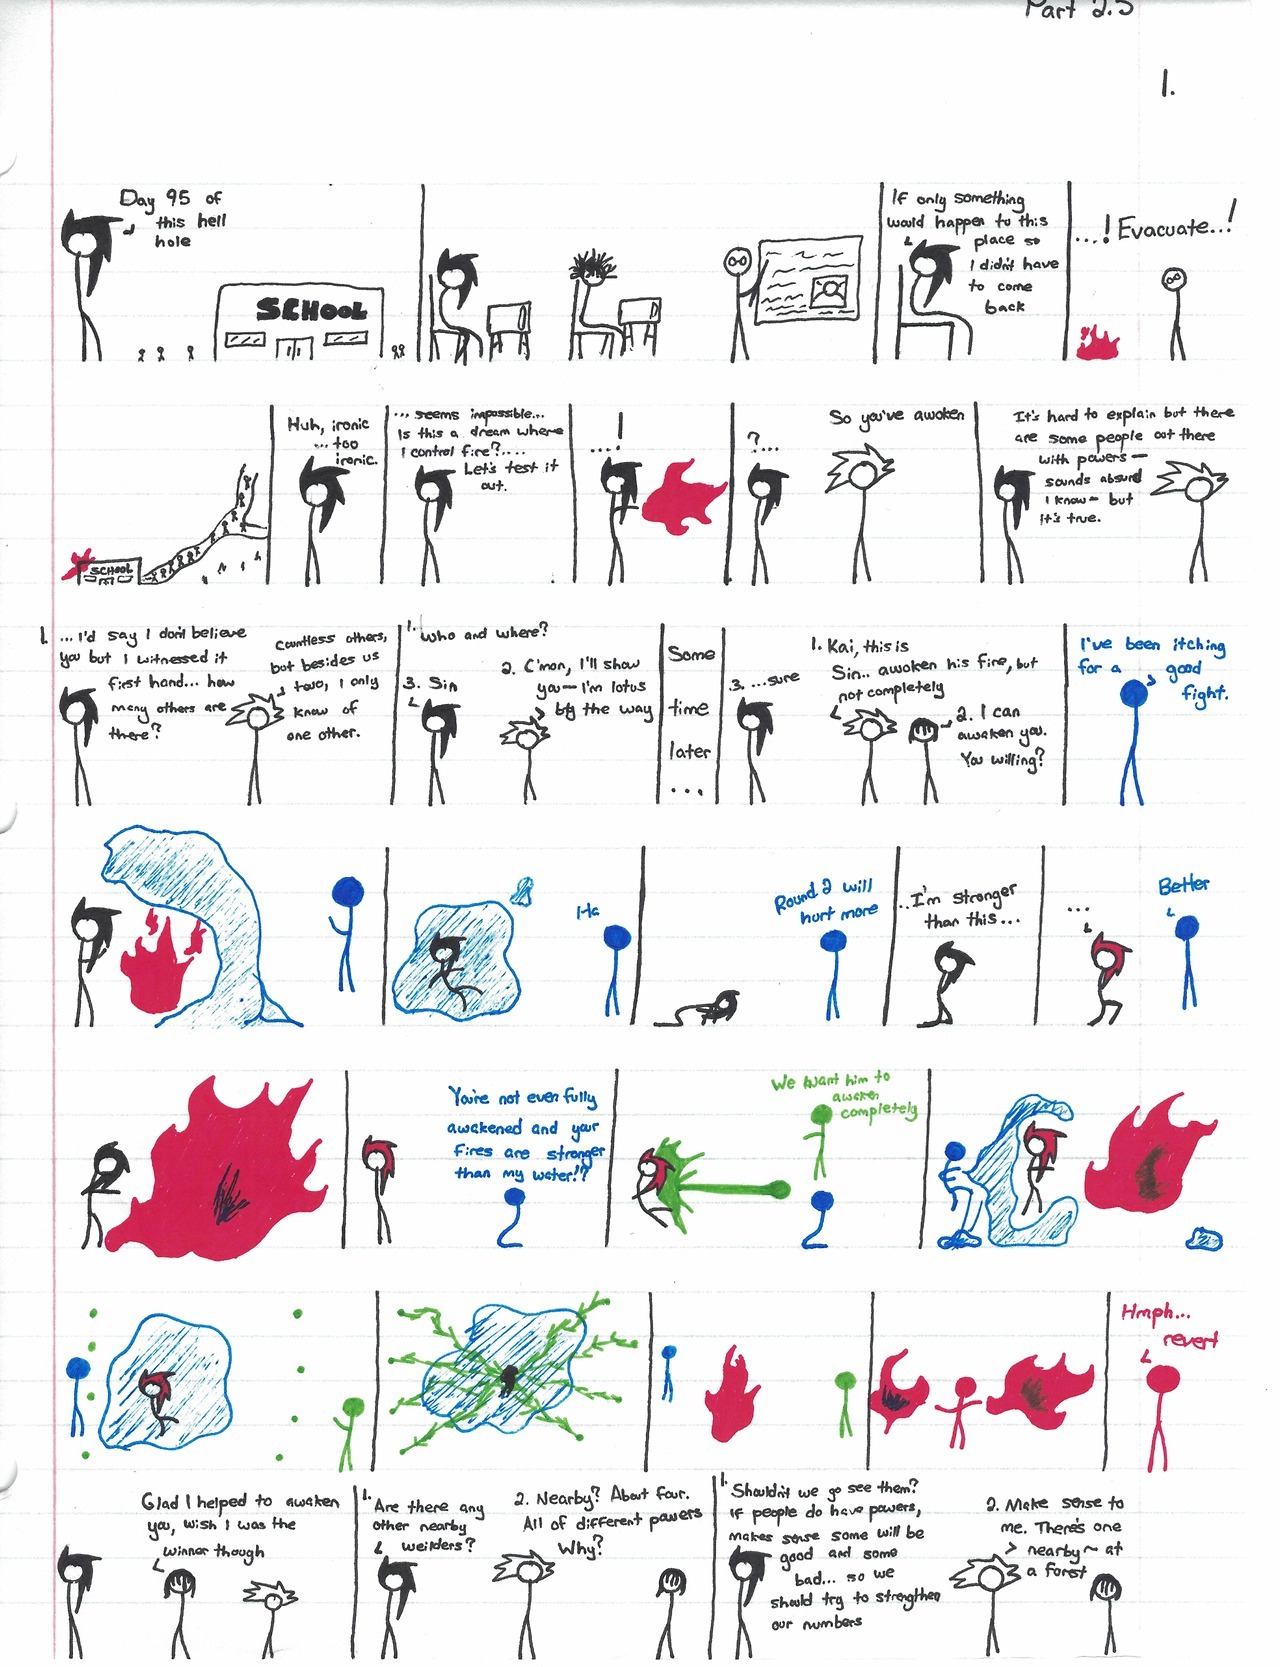 Part 2.5
1.
Day 95 of
this hell
hole
SCHOOL
If only something
would happen to this
place so
I didn't have
to come
back
...! Evacuate..!
SCHOOL
Huh, ironic
... too
ironic.
... seems impossible...
Is this a dream where
I control fire?....
Let's test it
out.
....!
?...
So you've awoken
It's hard to explain but there
are some people out there
with powers—
sounds absurd
I know— but
it's true.
1. ...I'd say I don't believe
you but I witnessed it
first hand... how
many others are
there?
Countless others,
but besides us
two, I only
know of
one other.
1. Who and where?
2. C'mon, I'll show
you— I'm lotus
by the way
3. Sin
Some
time
later
...
3. ...sure
1. Kai, this is
Sin.. awoken his fire, but
not completely
2. I can
awaken you.
You willing?
I've been itching
for a good
fight.
Ha
Round 2 will
hurt more
..I'm stronger
than this...
...
Better
You're not even fully
awakened and your
fires are stronger
than my water!?
We want him to
awaken
completely
Hmph...
revert
Glad I helped to awaken
you, wish I was the
winner though
1. Are there any
other nearby
weilders?
2. Nearby? About four.
All of different powers
Why?
1. Shouldn't we go see them?
If people do have powers,
makes sense some will be
good and some
bad... so we
should try to strengthen
our numbers
2. Make sense to
me. There's one
nearby~ at
a forest